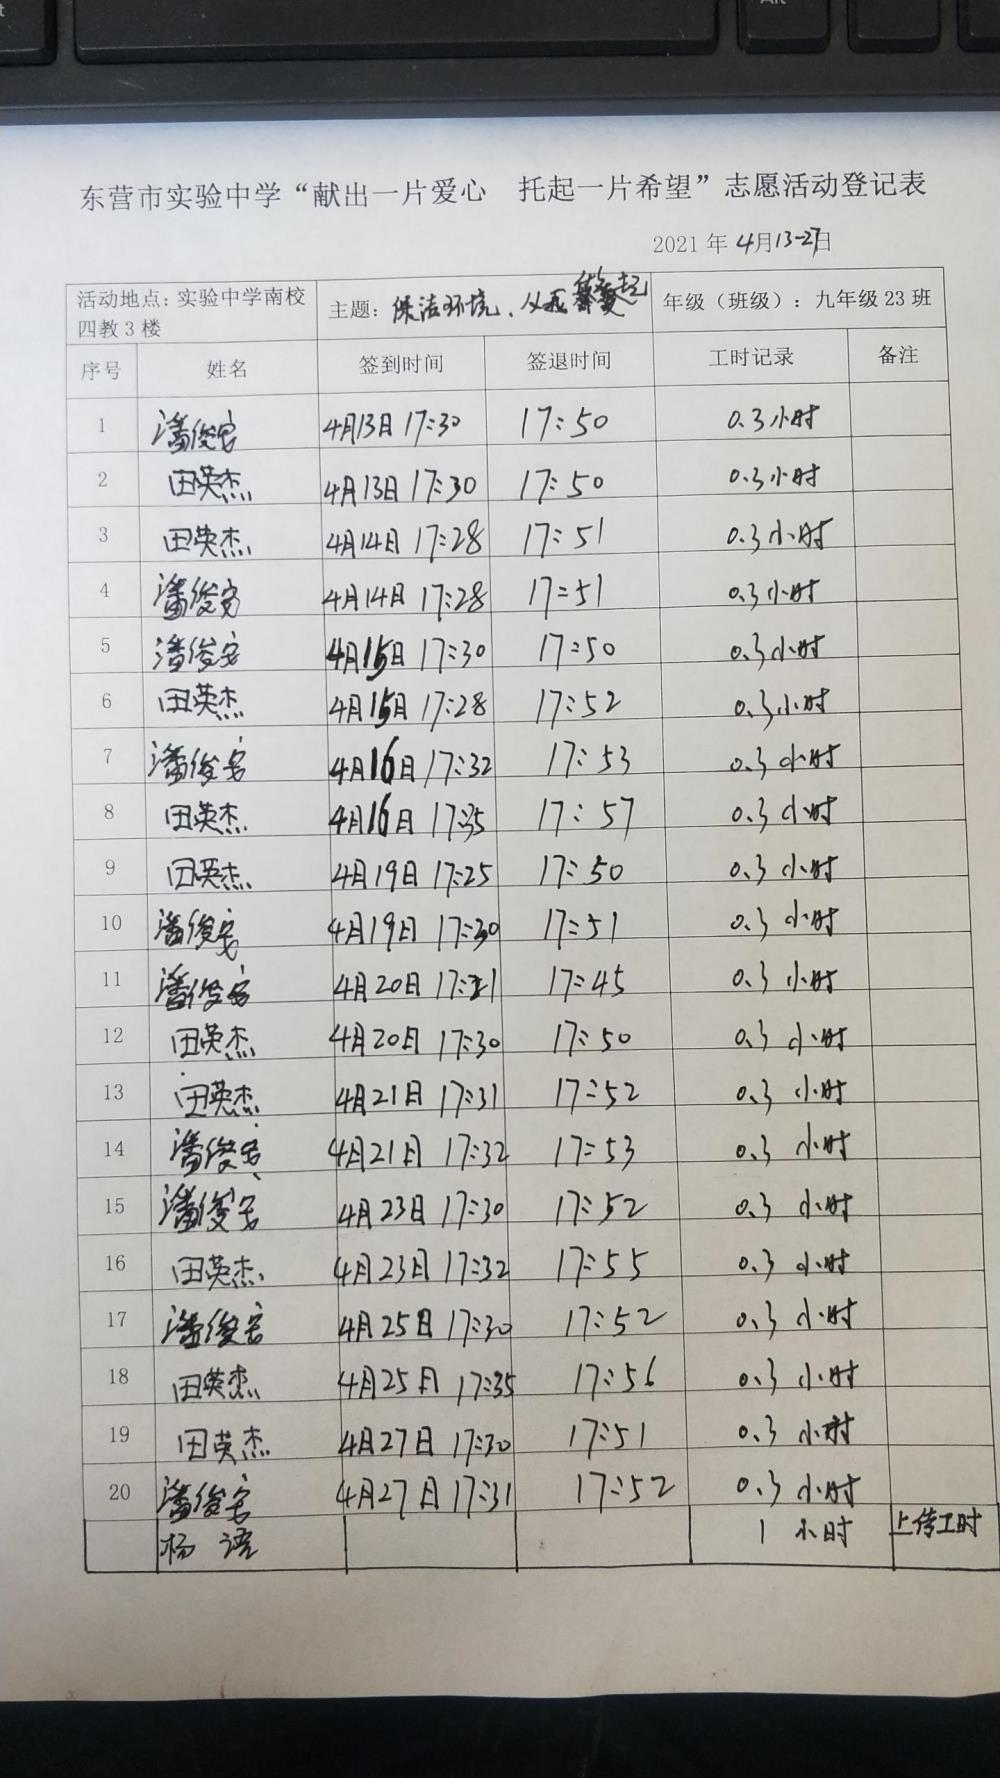 东营市实验中学“献出一片爱心 托起一片希望”志愿活动登记表
2021年 4月13-27日
活动地点：实验中学南校四教3楼 主题：保洁环境、从我做起 年级（班级）：九年级23班
序号 姓名 签到时间 签退时间 工时记录 备注
1 潘俊宏 4月13日 17:30 17:50 0.3小时
2 田英杰 4月13日 17:30 17:50 0.3小时
3 田英杰 4月14日 17:28 17:51 0.3小时
4 潘俊宏 4月14日 17:28 17:51 0.3小时
5 潘俊宏 4月15日 17:30 17:50 0.3小时
6 田英杰 4月15日 17:28 17:52 0.3小时
7 潘俊宏 4月16日 17:32 17:53 0.3小时
8 田英杰 4月16日 17:35 17:57 0.3小时
9 田英杰 4月19日 17:25 17:50 0.3小时
10 潘俊宏 4月19日 17:30 17:51 0.3小时
11 潘俊宏 4月20日 17:21 17:45 0.3小时
12 田英杰 4月20日 17:30 17:50 0.3小时
13 田英杰 4月21日 17:31 17:52 0.3小时
14 潘俊宏 4月21日 17:32 17:53 0.3小时
15 潘俊宏 4月23日 17:30 17:52 0.3小时
16 田英杰 4月23日 17:32 17:55 0.3小时
17 潘俊宏 4月25日 17:30 17:52 0.3小时
18 田英杰 4月25日 17:35 17:56 0.3小时
19 田英杰 4月27日 17:30 17:51 0.3小时
20 潘俊宏 4月27日 17:31 17:52 0.3小时
杨语 1小时 上传工时